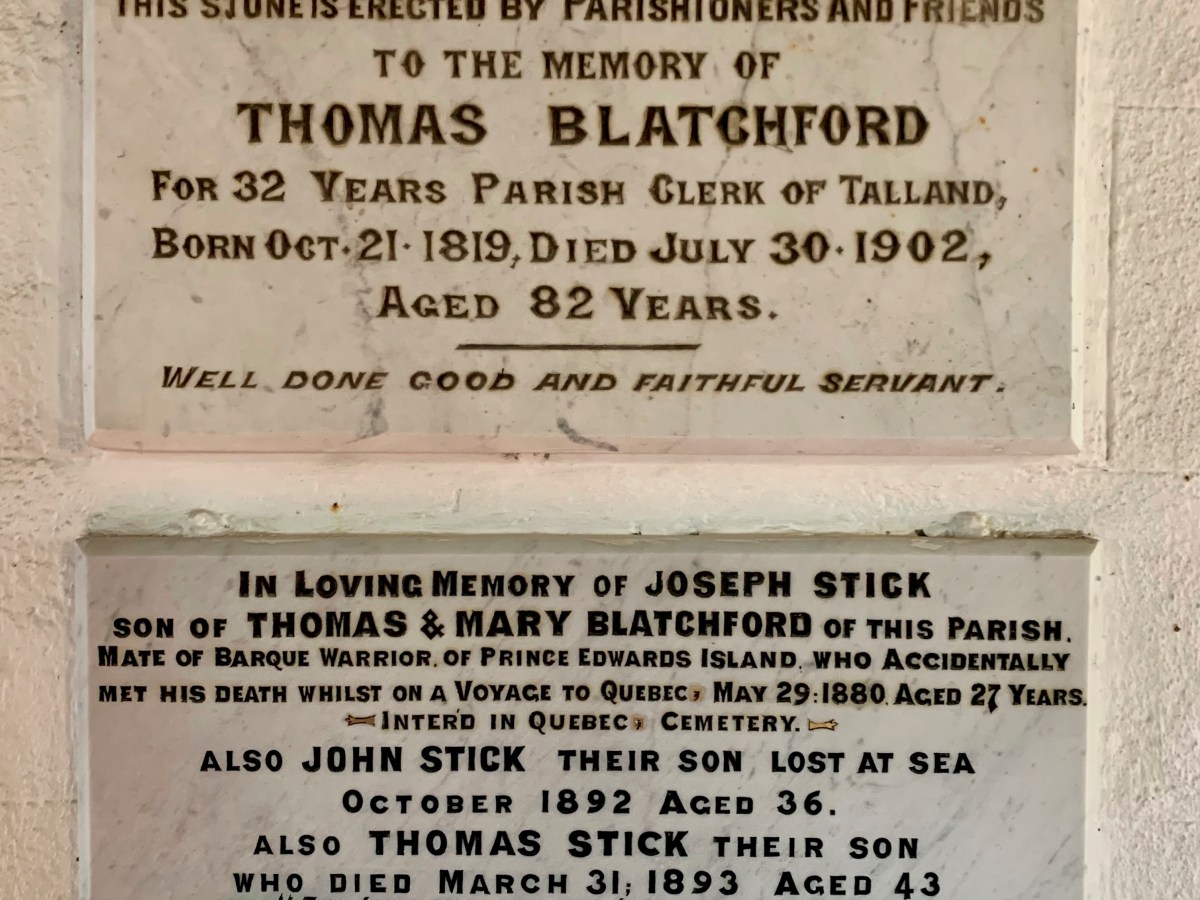 THIS STONE IS ERECTED BY PARISHIONERS AND FRIENDS
TO THE MEMORY OF
THOMAS BLATCHFORD
FOR 32 YEARS PARISH CLERK OF TALLAND,
BORN OCT. 21. 1819, DIED JULY 30. 1902,
AGED 82 YEARS.
WELL DONE GOOD AND FAITHFUL SERVANT.
IN LOVING MEMORY OF JOSEPH STICK
SON OF THOMAS & MARY BLATCHFORD OF THIS PARISH.
MATE OF BARQUE WARRIOR, OF PRINCE EDWARDS ISLAND, WHO ACCIDENTALLY
MET HIS DEATH WHILST ON A VOYAGE TO QUEBEC, MAY 29:1880. AGED 27 YEARS.
INTER'D IN QUEBEC, CEMETERY.
ALSO JOHN STICK THEIR SON LOST AT SEA
OCTOBER 1892 AGED 36.
ALSO THOMAS STICK THEIR SON
WHO DIED MARCH 31; 1893 AGED 43